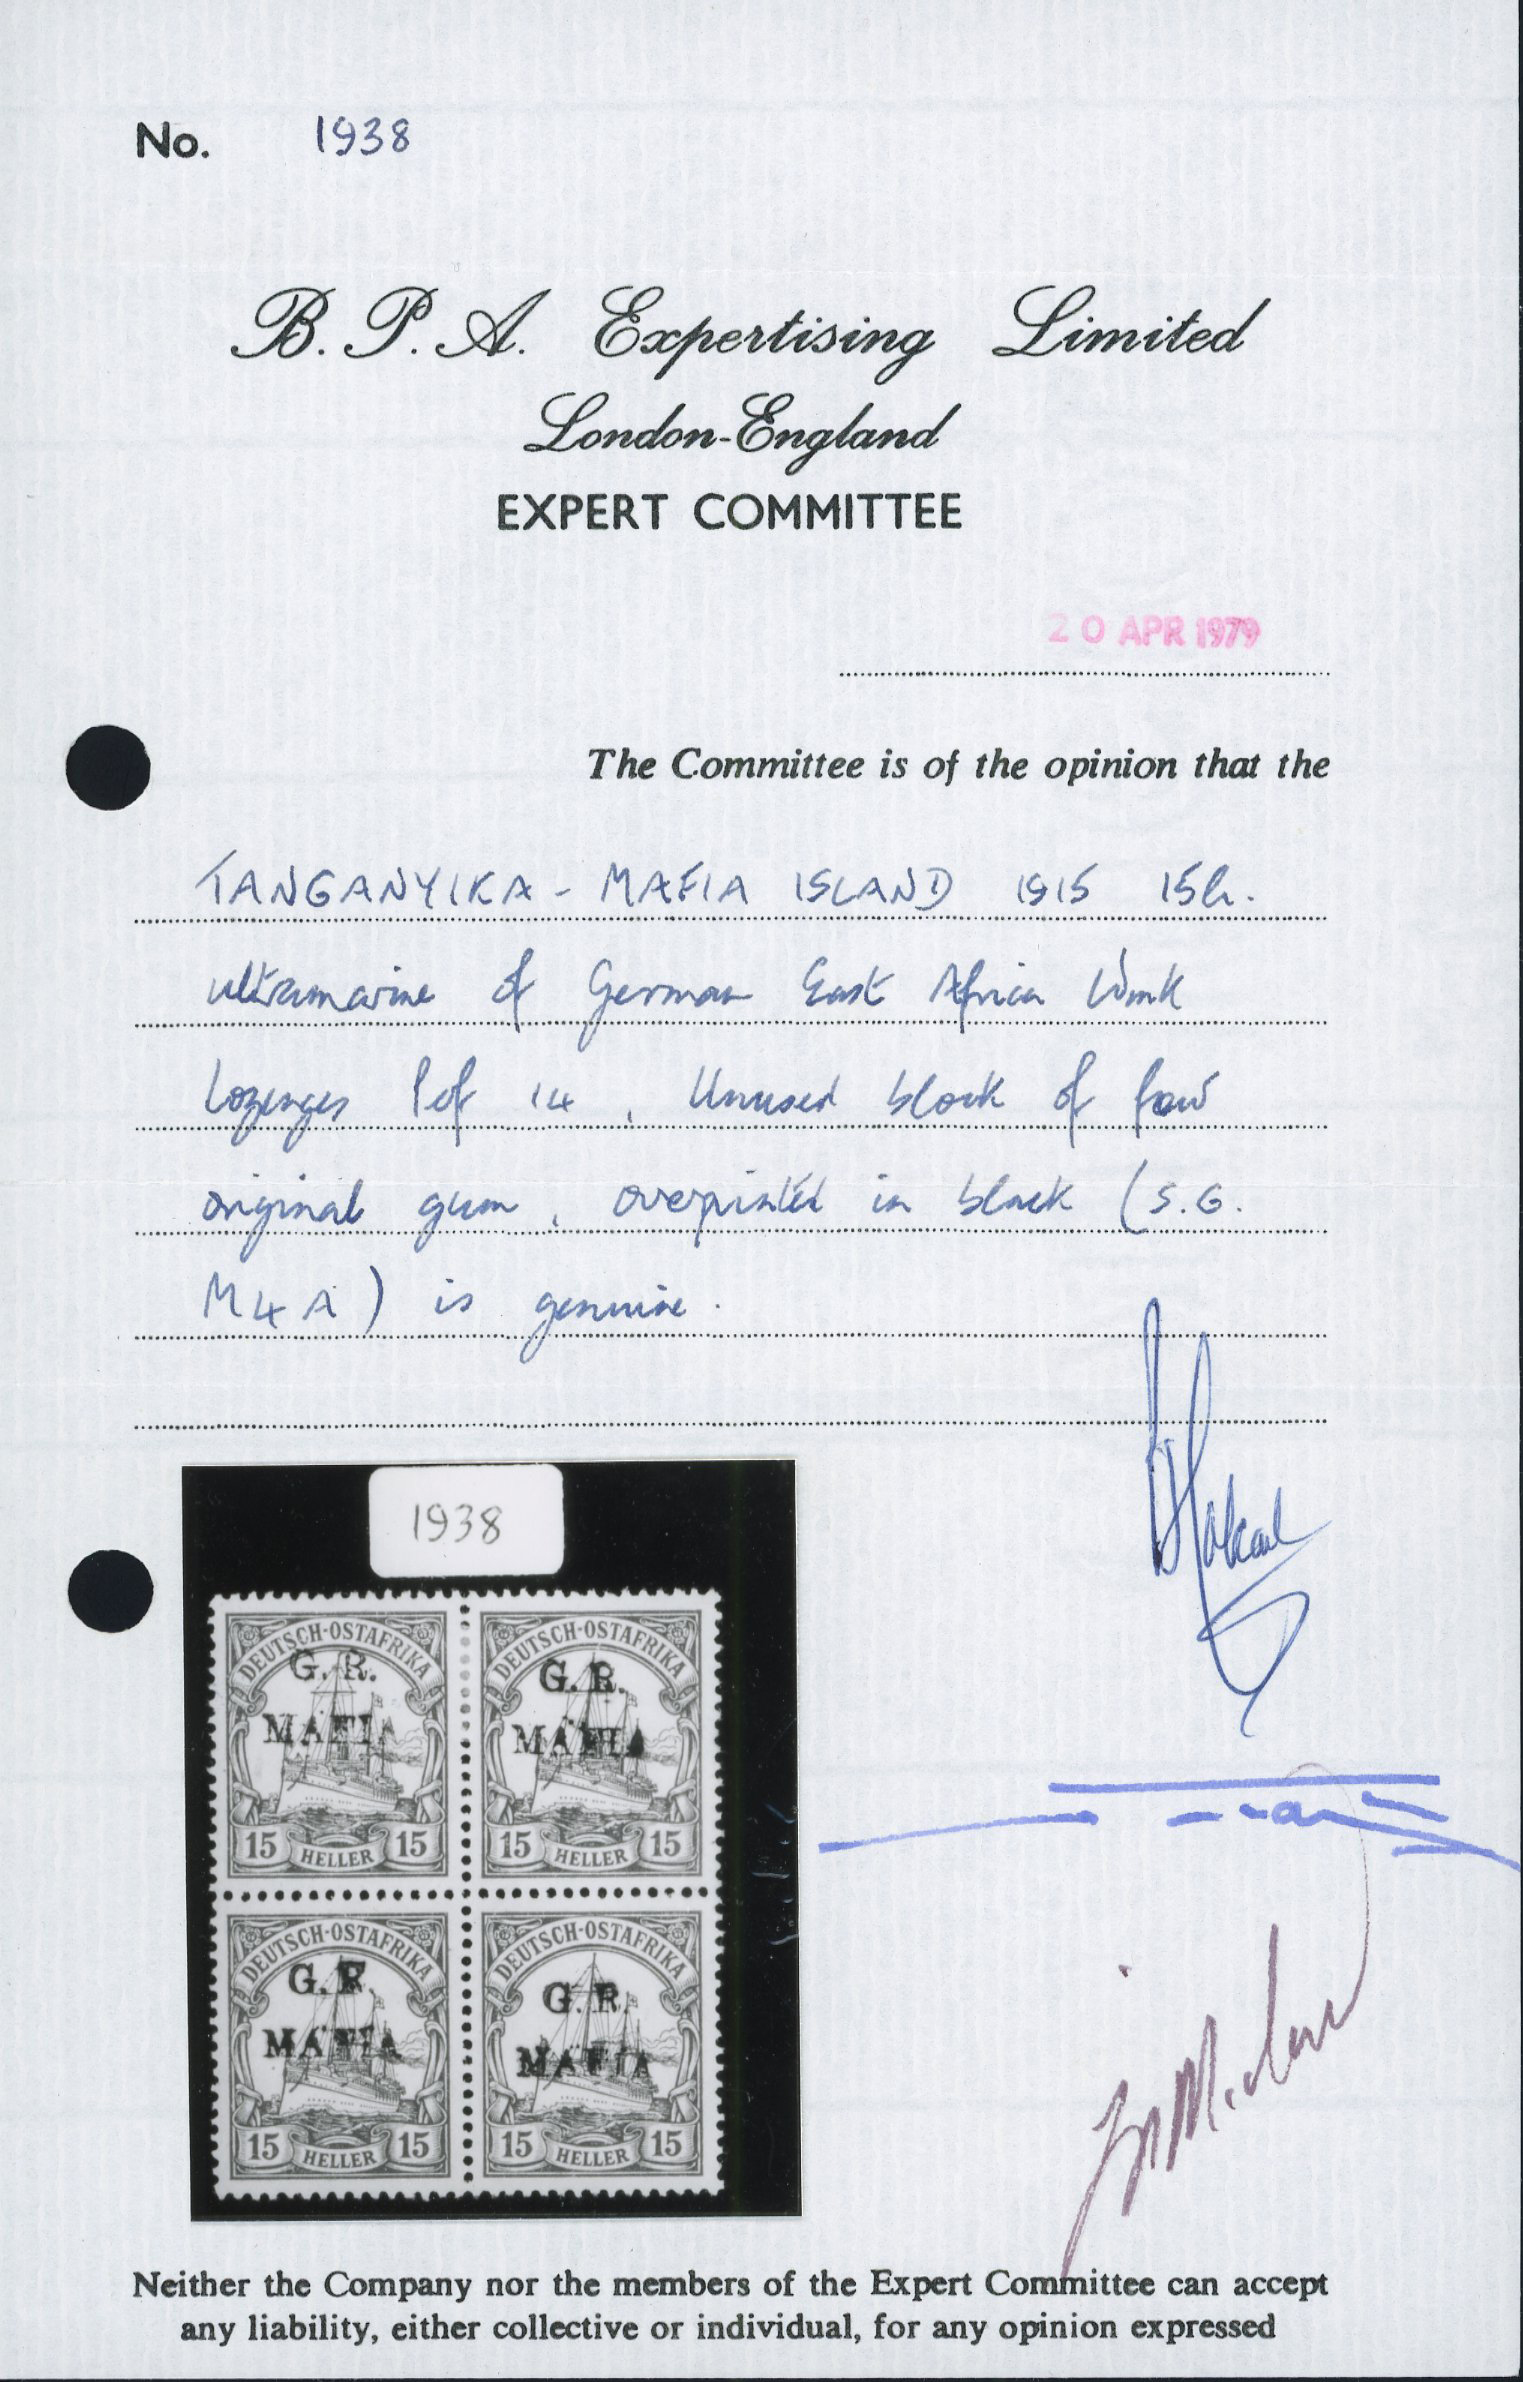 No. 1938
B. P. A. Expertising Limited
London-England
EXPERT COMMITTEE
20 APR 1979
The Committee is of the opinion that the
TANGANYIKA - MAFIA ISLAND 1915 15h.
ultramarine of German East Africa Wmk
Lozenges Perf 14, Unused block of four
original gum, overprinted in black (S.G.
M4A) is genuine.
1938
DEUTSCH-OSTAFRIKA
G.R.
MAFIA
15 HELLER 15
DEUTSCH-OSTAFRIKA
G.R.
MAFIA
15 HELLER 15
DEUTSCH-OSTAFRIKA
G.R.
MAFIA
15 HELLER 15
DEUTSCH-OSTAFRIKA
G.R.
MAFIA
15 HELLER 15
Neither the Company nor the members of the Expert Committee can accept
any liability, either collective or individual, for any opinion expressed